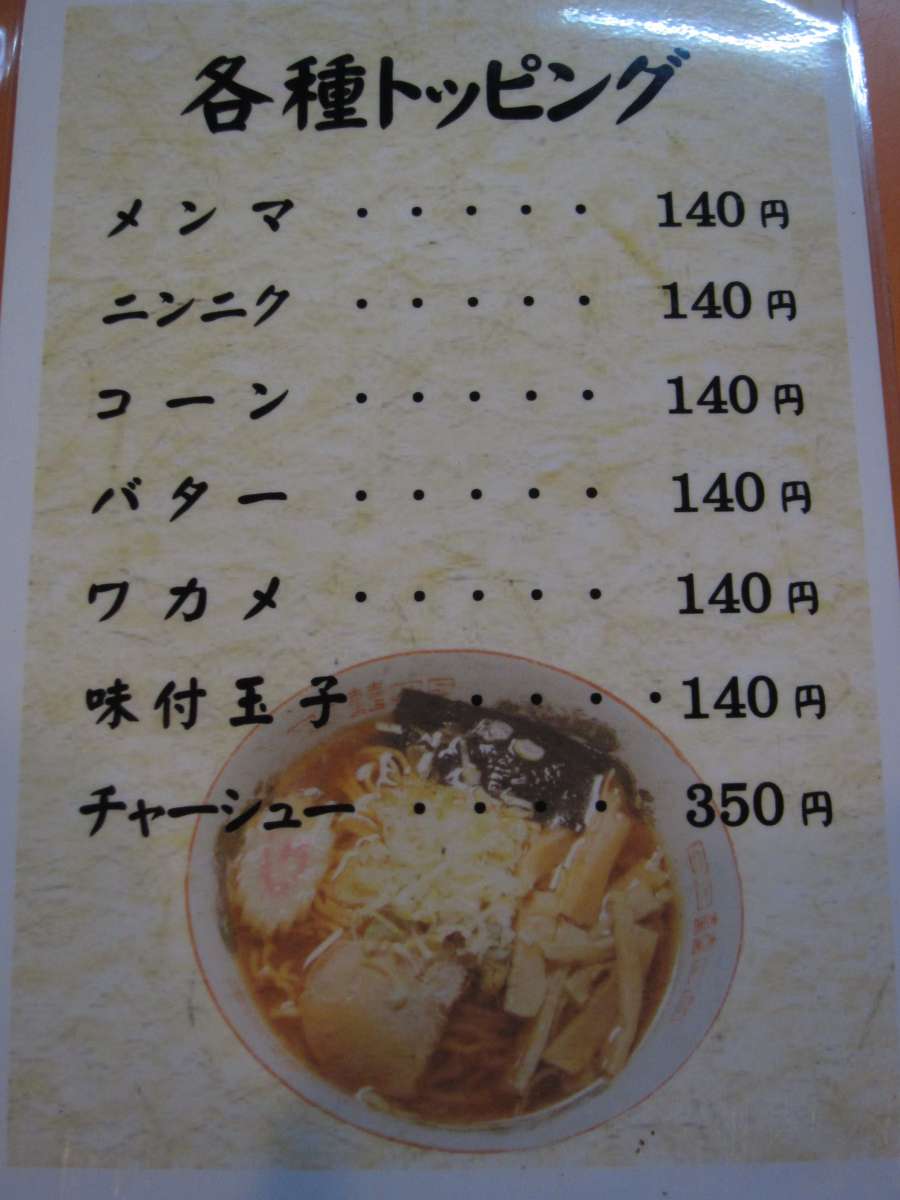 各種トッピング
メンマ ・・・・・ 140円
ニンニク ・・・・・ 140円
コーン ・・・・・ 140円
バター ・・・・・ 140円
ワカメ ・・・・・ 140円
味付玉子 ・・・・140円
チャーシュー ・・・・ 350円